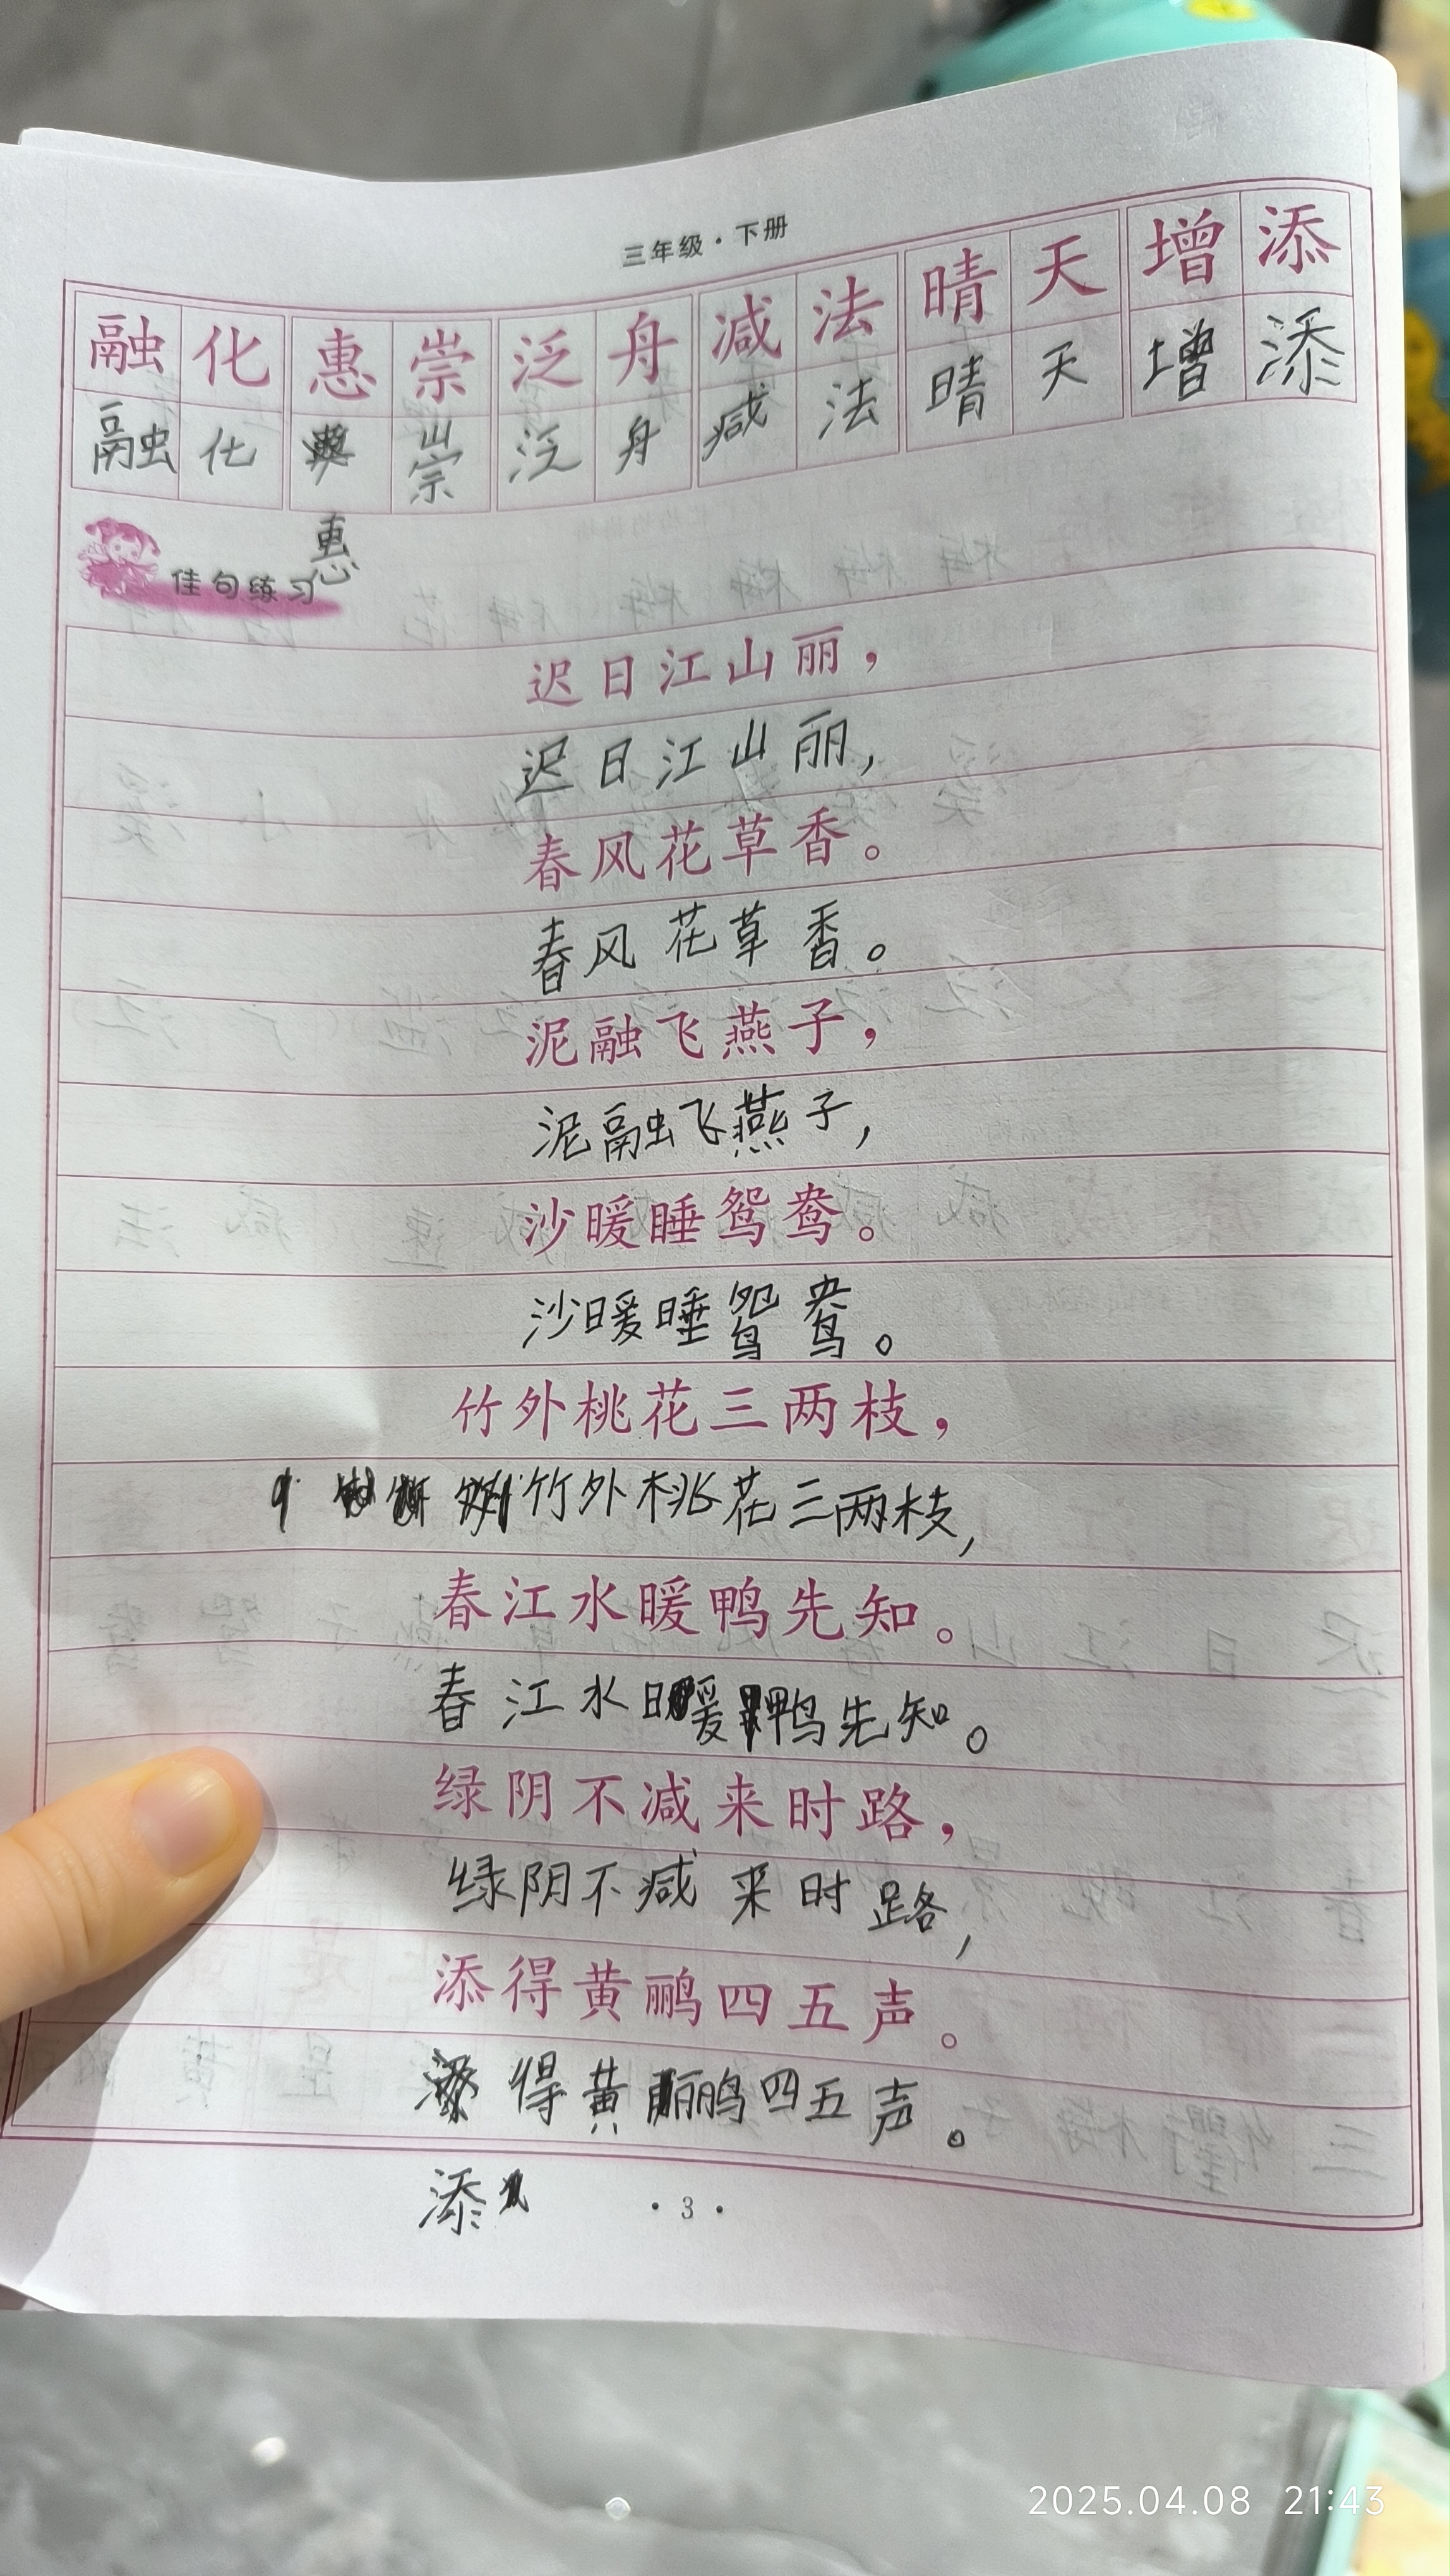 三年级·下册
融化惠崇泛舟减法晴天增添
融化崇泛舟减法晴天增添
惠
佳句练习
迟日江山丽，
迟日江山丽，
春风花草香。
春风花草香。
泥融飞燕子，
泥融飞燕子，
沙暖睡鸳鸯。
沙暖睡鸳鸯。
竹外桃花三两枝，
竹外桃花三两枝，
春江水暖鸭先知。
春江水暖鸭先知。
绿阴不减来时路，
绿阴不减来时路，
添得黄鹂四五声。
得黄鹂四五声。
添
·3·
2025.04.08 21:43